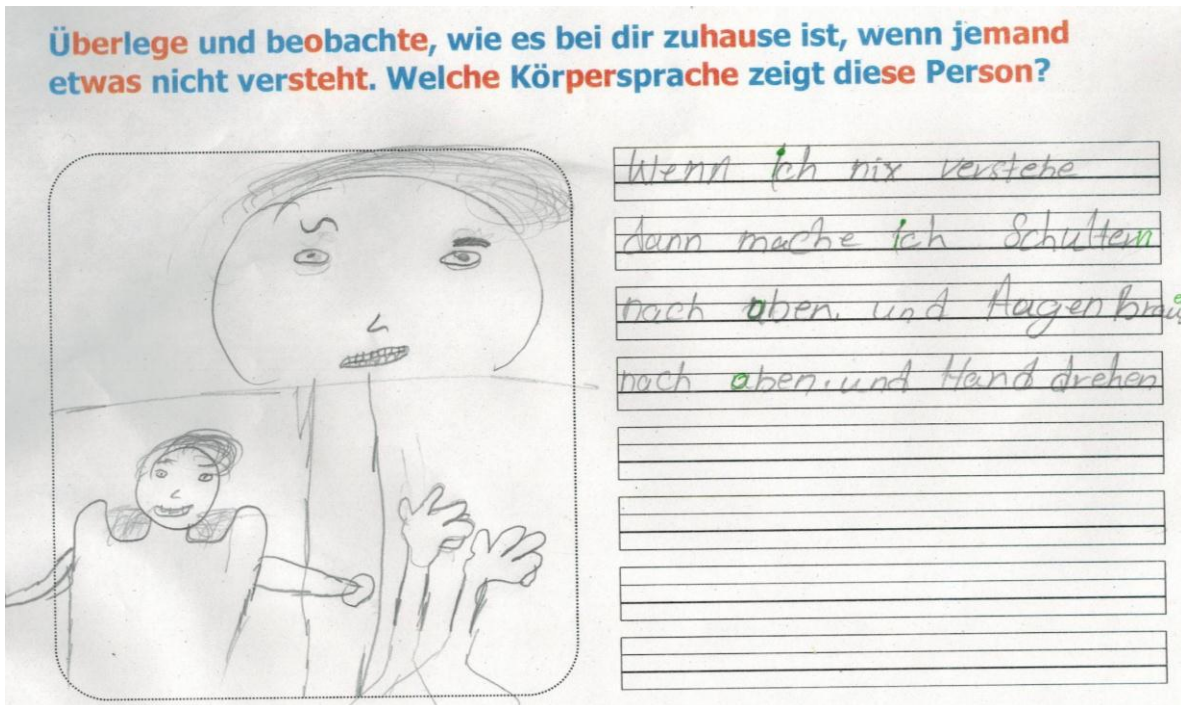 Überlege und beobachte, wie es bei dir zuhause ist, wenn jemand
etwas nicht versteht. Welche Körpersprache zeigt diese Person?
Wenn ich nix verstehe
dann mache ich Schultern
nach oben. und Aagenbraue
nach oben. und Hand drehen